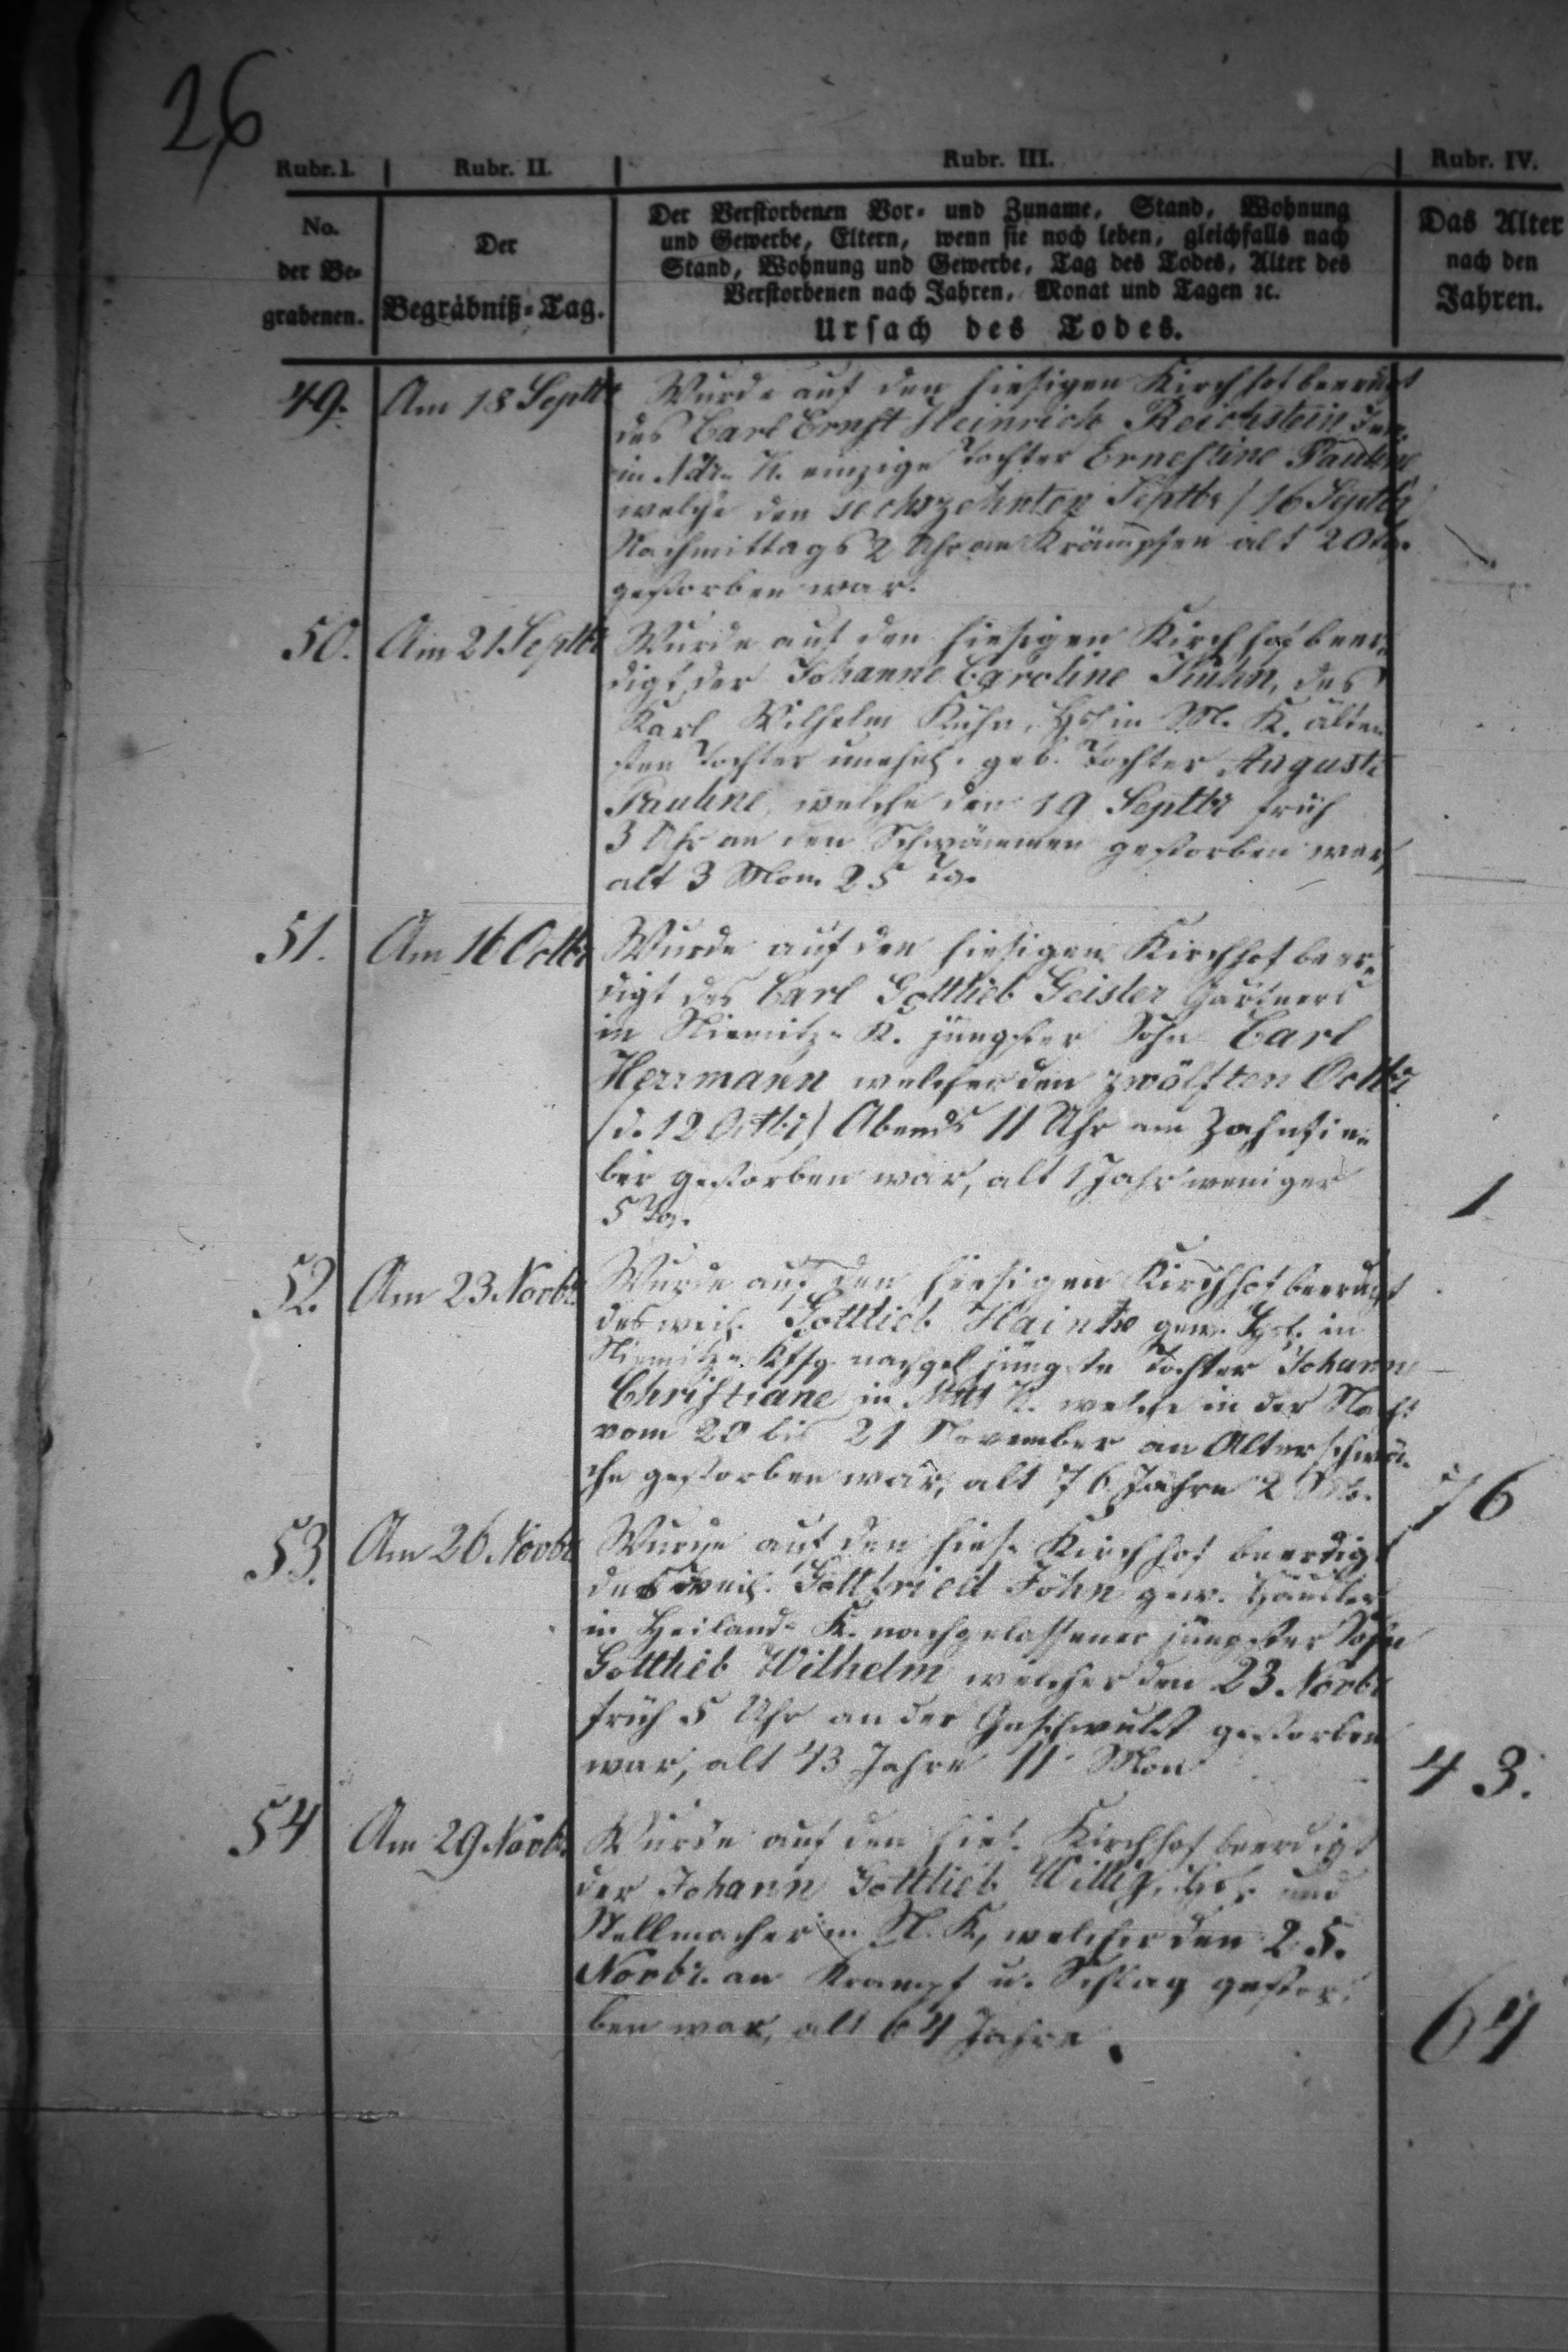 26
Rubr. I. Rubr. II. Rubr. III. Rubr. IV.
No.
der Be-
grabenen.
Der
Begräbniß-Tag.
Der Verstorbenen Vor- und Zuname, Stand, Wohnung
und Gewerbe, Eltern, wenn sie noch leben, gleichfalls nach
Stand, Wohnung und Gewerbe, Tag des Todes, Alter des
Verstorbenen nach Jahren, Monat und Tagen ꝛc.
Ursach des Todes.
Das Alter
nach den
Jahren.
49. Am 18 Septbr Wurde auf den hiesigen Kirchhof beerdigt
des Carl Ernst Heinrich Reichstein
in K. einzige Tochter Ernestine Pauline
welche den sechszehnten Septbr (16 Septbr)
Nachmittags 2 Uhr an Krämpfen alt 20 Tg.
gestorben war.
50. Am 21 Septbr Wurde auf den hiesigen Kirchhof beer-
digt, der Johanne Caroline Kuhn, des
Karl Wilhelm Kuhn, Hsl in M. K. älte-
sten Tochter unehel. geb. Tochter Auguste
Pauline, welche den 19 Septbr früh
3 Uhr an den Schwämmen gestorben war,
alt 3 Mon. 25 Tg.
51. Am 16 Octbr Wurde auf den hiesigen Kirchhof beer-
digt des Carl Gottlieb Geisler Gärtners
in Niemitz-K. jüngster Sohn Carl
Herrmann welcher den zwölften Octbr
(d. 12 Octbr) Abends 11 Uhr am Zahnfie-
ber gestorben war, alt 1 Jahr weniger
5 Tg.
1
52. Am 23 Novbr. Wurde auf den hiesigen Kirchhof beerdigt
des weil. Gottlieb Hainke gew. Hsl. in
Niemitz- nachgel. jüngste Tochter Johanne
Christiane in K. welche in der Nacht
vom 20 bis 21 November an Alterschwä-
che gestorben war, alt 76 Jahre 2 Mo.
76
53. Am 26 Novbr Wurde auf den hies. Kirchhof beerdigt
des weil. Gottfried John gew. Häusler
in Heiland-K. nachgelassener jüngster Sohn
Gottlieb Wilhelm welcher den 23 Novbr
früh 5 Uhr an der Geschwulst gestorben
war, alt 43 Jahre 11 Mon
43.
54 Am 29 Novbr. Wurde auf den hies. Kirchhof beerdigt
der Johann Gottlieb Willig, Hsl. und
Stellmacher in N. K, welcher den 25.
Novbr. an Krampf u. Schlag gestor-
ben war, alt 64 Jahre.
64